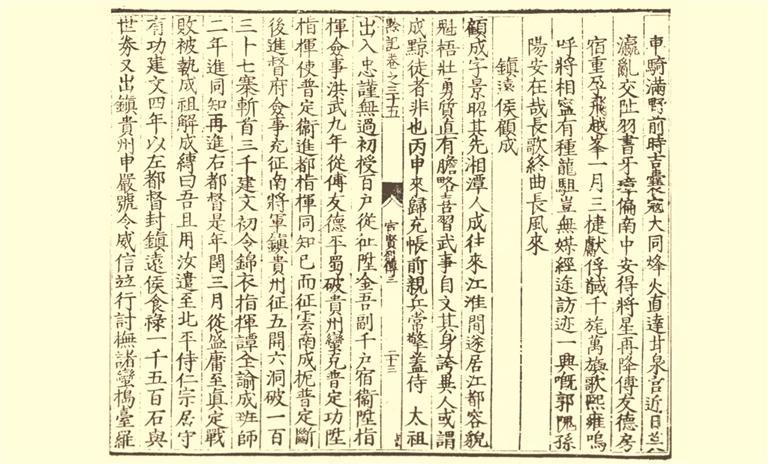 車騎滿野前時吉囊寇大同烽火直達甘泉宮近日岦八
瀛亂交阯羽書牙璋徧南中安得將星再降傅友德房
宿重孕飛越峯一月三捷獻俘馘千旄萬旗歌熙雍嗚
呼將相寧有種龍駔豈無媒經途訪迹一興嘅郭隗孫
陽安在哉長歌終曲長風來
鎮遠侯顧成
顧成字景昭其先湘潭人成往來江淮間遂居江都容貌
魁梧壯勇質直有膽略喜習武事自文其身誇異人或謂
成黥徒者非也丙申來歸充帳前親兵常擎蓋侍 太祖
黔記卷之三十五
宦賢列傳二
二十三
出入忠謹無過初授百戶從征陞金吾副千戶宿衞陞指
揮僉事洪武九年從傅友德平蜀破貴州蠻充普定功陞
指揮使普定衞進都指揮同知已而征雲南成扼普定斷
後進督府僉事充征南將軍鎮貴州征五開六洞破一百
三十七寨斬首三千建文初令錦衣指揮譚全諭成班師
二年進同知再進右都督是年閏三月從盛庸至真定戰
敗被執成祖解成縛曰吾且用汝遣至北平侍仁宗居守
有功建文四年以左都督封鎮遠侯食祿一千五百石與
世券又出鎮貴州申嚴號令威信竝行討撫諸蠻楊臺羅